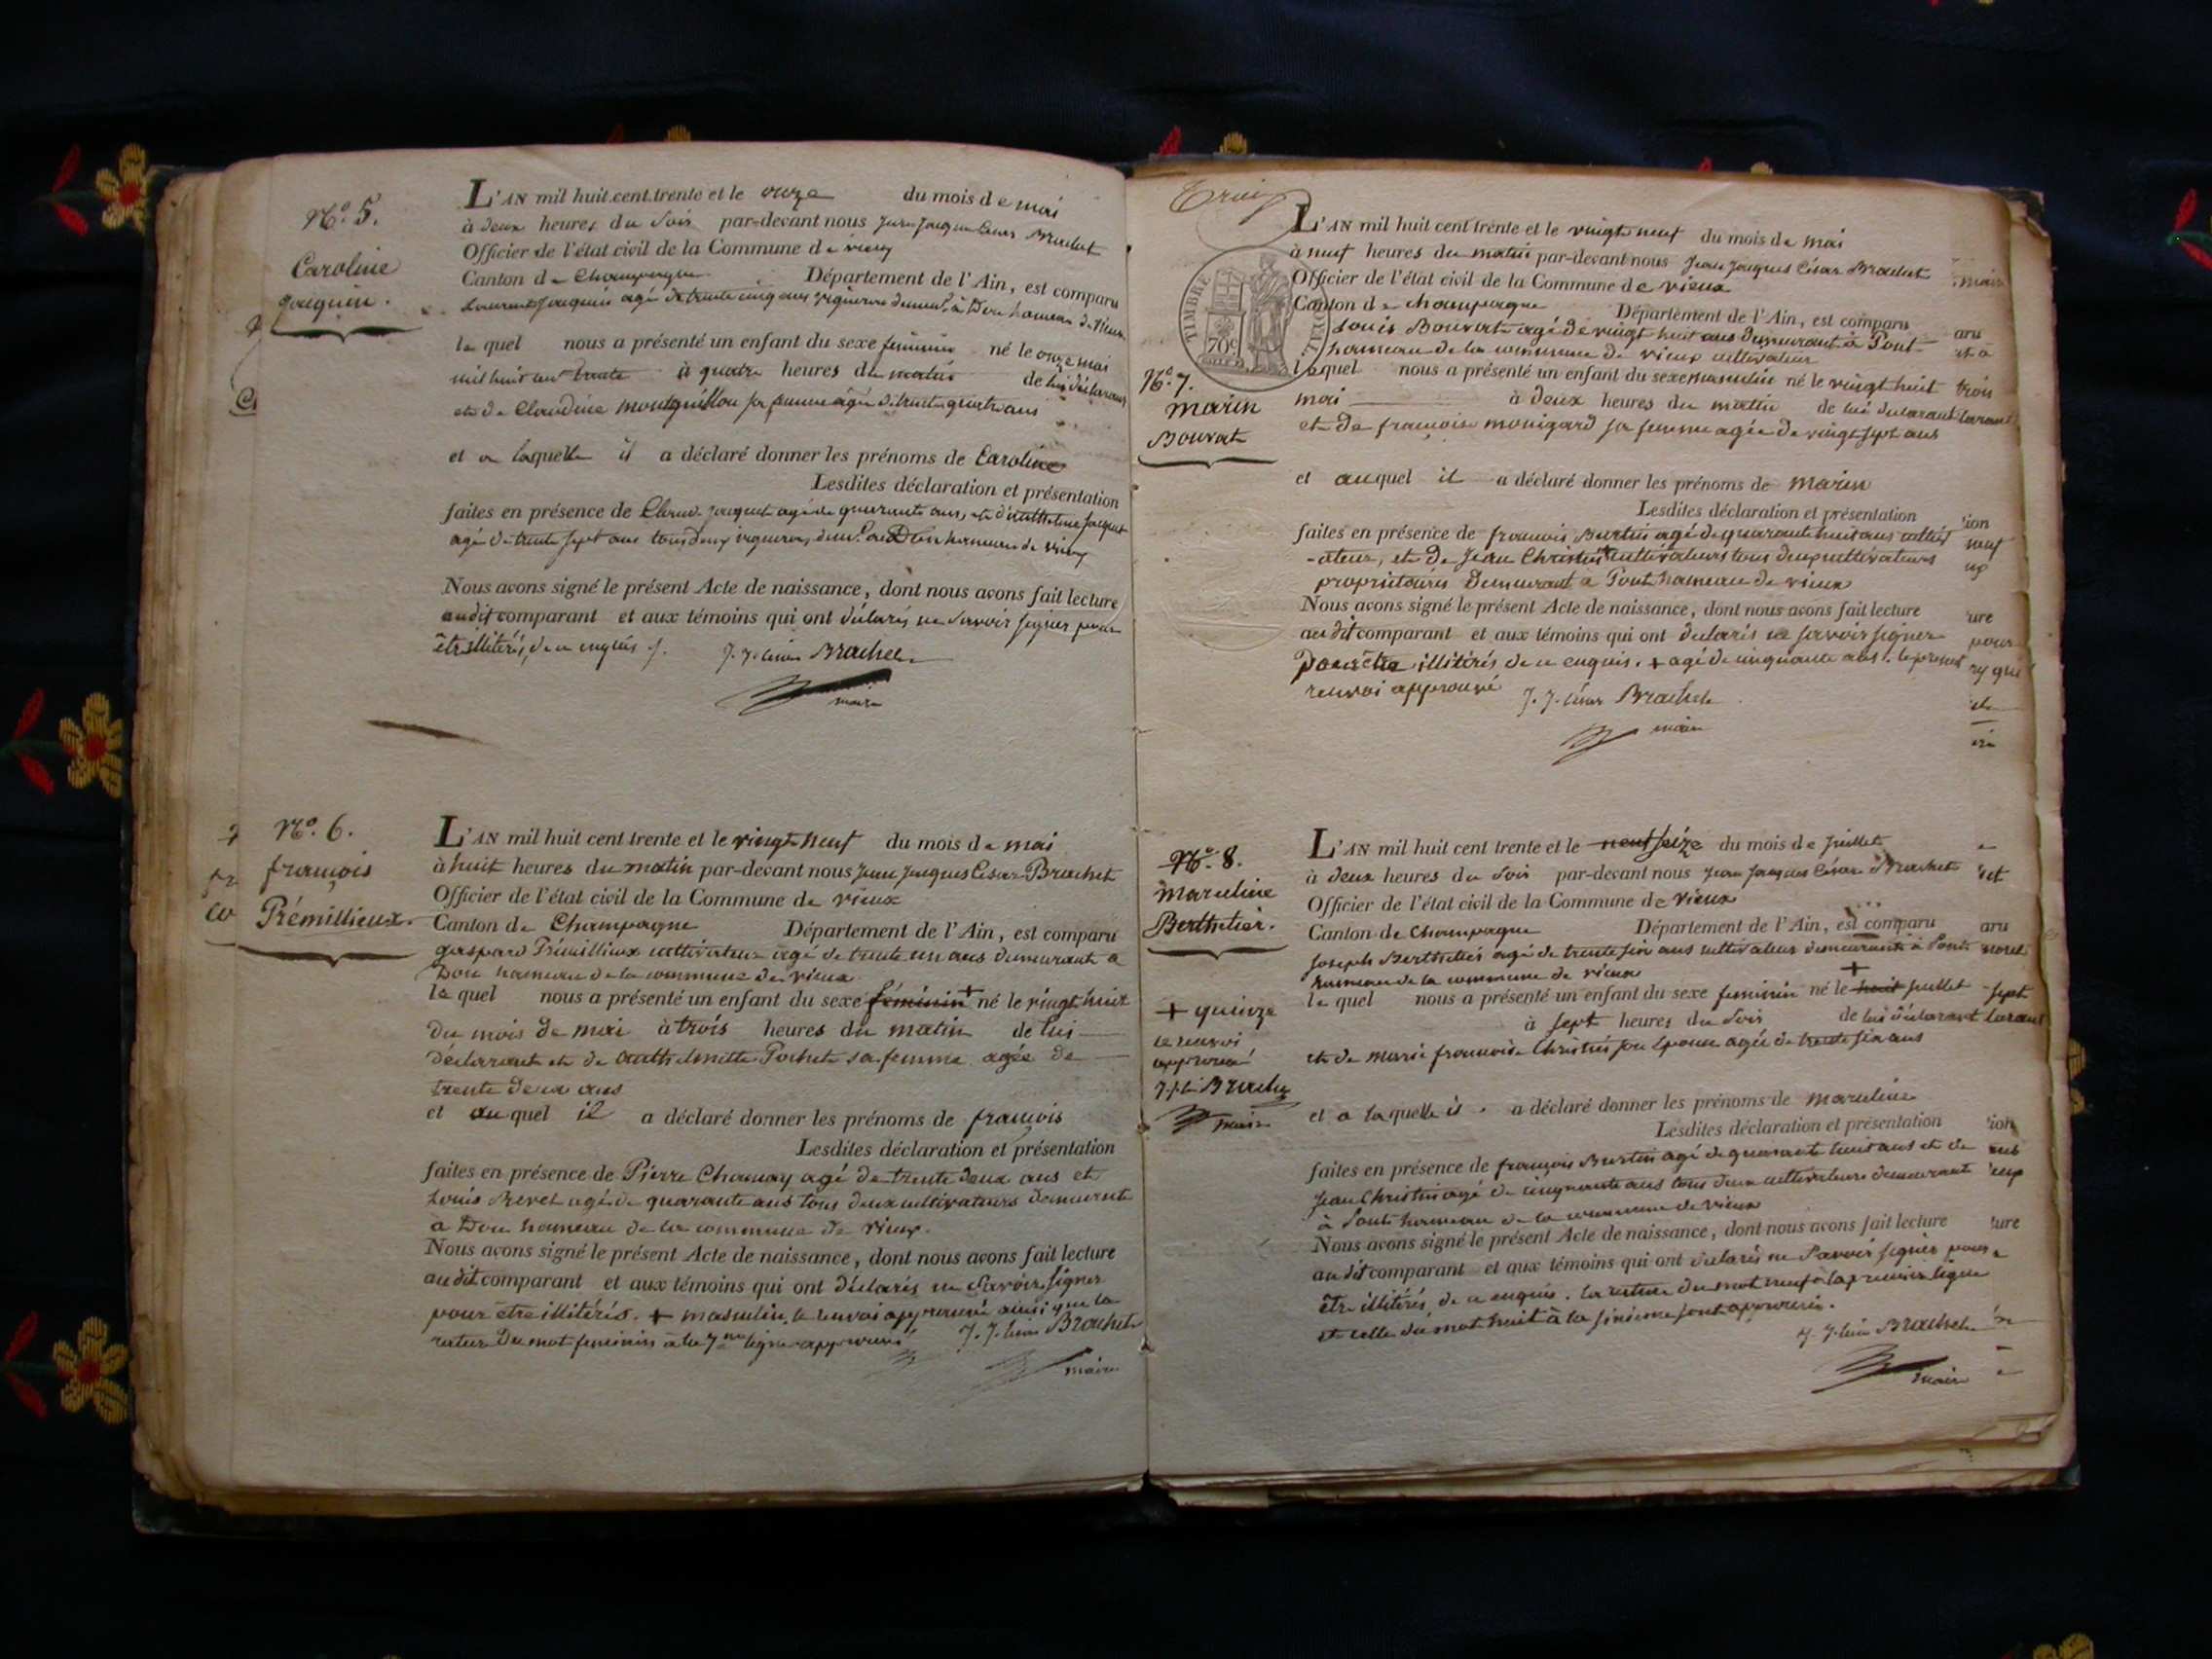 N.º 5.
Caroline
Jacquin.
L'AN mil huit cent trente et le onze du mois de mai
à deux heures du soir par-devant nous Jean Jacques César Brachet
Officier de l'état civil de la Commune de vieux
Canton de Champagne Département de l'Ain, est comparu
Jacquin agé de trente cinq ans vigneron à hameau de vieux
lequel nous a présenté un enfant du sexe féminin né le onze mai
mil huit cent trente à quatre heures du matin de lui déclarant
et de Claudine sa femme agée de trente quatre ans
et a laquelle il a déclaré donner les prénoms de Caroline
Lesdites déclaration et présentation
faites en présence de agé de quarante ans, et d'
agé de trente sept ans tous deux vignerons, hameau de vieux
Nous avons signé le présent Acte de naissance, dont nous avons fait lecture
audit comparant et aux témoins qui ont déclarés ne savoir signer pour
être illitérés, de ce enquis
J. J. César Brachet
maire
N.º 6.
françois
Prémillieux.
L'AN mil huit cent trente et le vingt neuf du mois de mai
à huit heures du matin par-devant nous Jean Jacques César Brachet
Officier de l'état civil de la Commune de vieux
Canton de Champagne Département de l'Ain, est comparu
gaspard Prémillieux cultivateur agé de trente un ans demeurant a
Don hameau de la commune de vieux
lequel nous a présenté un enfant du sexe féminin + né le vingt huit
du mois de mai à trois heures du matin de lui
déclarant et de sa femme agée de
trente deux ans
et auquel il a déclaré donner les prénoms de françois
Lesdites déclaration et présentation
faites en présence de Pierre Charnay agé de trente deux ans et
Louis Revet agé de quarante ans tous deux cultivateurs demeurant
a Don hameau de la commune de vieux.
Nous avons signé le présent Acte de naissance, dont nous avons fait lecture
audit comparant et aux témoins qui ont déclarés ne savoir signer
pour être illitérés. + masculin, le renvoi approuvé ainsi que la
rature du mot feminin à la 7me ligne approuvé J. J. César Brachet
maire
TIMBRE ROYAL
70c
N.º 7.
marin
Bouvat
L'AN mil huit cent trente et le vingt neuf du mois de mai
à neuf heures du matin par-devant nous Jean Jacques César Brachet
Officier de l'état civil de la Commune de vieux
Canton de champagne Département de l'Ain, est comparu
Louis Bouvat agé de vingt huit ans demeurant à Pont
hameau de la commune de vieux cultivateur
lequel nous a présenté un enfant du sexe masculin né le vingt huit
mai à deux heures du matin de lui declarant
et de françoise monigard sa femme agée de vingt sept ans
et auquel il a déclaré donner les prénoms de marin
Lesdites déclaration et présentation
faites en présence de françois Burtin agé de quarante huit ans cultiv
-ateur, et de Jean Christin + cultivateurs tous deux cultivateurs
proprietaires demeurant a Pont hameau de vieux
Nous avons signé le présent Acte de naissance, dont nous avons fait lecture
audit comparant et aux témoins qui ont declarés ne savoir signer
pour être illitérés de ce enquis. + agé de cinquante ans. le present
renvoi approuvé J. J. César Brachet
maire
N.º 8.
Marceline
Berthetier.
+ quinze
le renvoi
approuvé
Brachet
maire
L'AN mil huit cent trente et le neuf seize du mois de juillet
à deux heures du soir par-devant nous Jean Jacques César Brachet
Officier de l'état civil de la Commune de Vieux
Canton de Champagne Département de l'Ain, est comparu
Joseph Berthetier agé de trente six ans cultivateur demeurant à Pont
hameau de la commune de vieux
lequel nous a présenté un enfant du sexe feminin né le huit + juillet
à sept heures du soir de lui déclarant
et de marie françoise Christin son épouse agée de trente six ans
et a laquelle il a déclaré donner les prénoms de marceline
Lesdites déclaration et présentation
faites en présence de françois Burtin agé de quarante huit ans et de
Jean Christin agé de cinquante ans tous deux cultivateurs demeurant
à Pont hameau de la commune de vieux
Nous avons signé le présent Acte de naissance, dont nous avons fait lecture
audit comparant et aux témoins qui ont declarés ne savoir signer pour
être illitérés, de ce enquis. la rature du mot neuf à la premiere ligne
et celle du mot huit à la sixieme sont approuvés.
J. J. César Brachet
maire